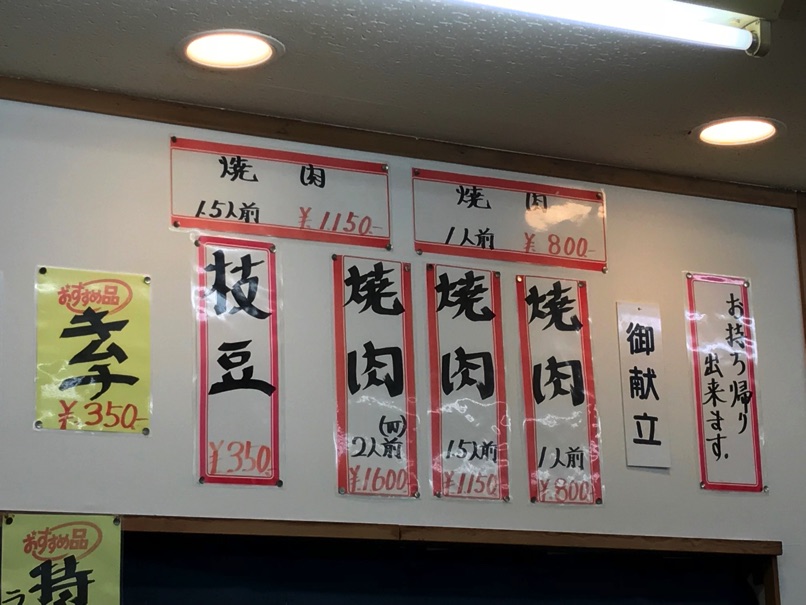 焼肉
1.5人前 ¥1150-
焼肉
1人前 ¥800-
お持ち帰り
出来ます。
御献立
焼肉
1人前
¥800-
焼肉
1.5人前
¥1150-
焼肉
(皿)
2人前
¥1600-
枝豆
¥350-
おすすめ品
キムチ
¥350-
おすすめ品